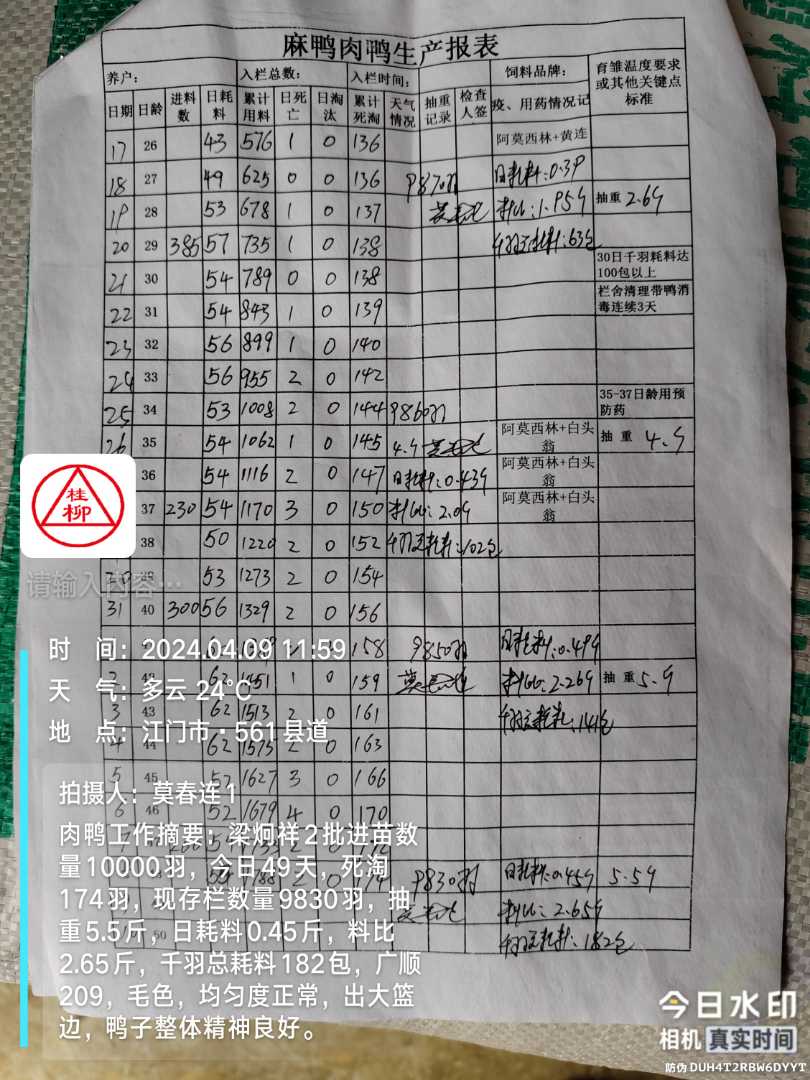 麻鸭肉鸭生产报表
养户： 入栏总数： 入栏时间： 饲料品牌： 育雏温度要求或其他关键点标准
日期 日龄 进料数 日耗料 累计用料 日死亡 日淘汰 累计死淘 天气情况 抽重记录 检查人签 疫、用药情况记
17 26 43 576 1 0 136 阿莫西林+黄连
18 27 49 625 0 0 136 9870羽 日耗料:0.39
19 28 53 678 1 0 137 料比:1.95斤 抽重 2.6斤
20 29 385 57 735 1 0 138 千羽总耗料:63包
21 30 54 789 0 0 138 30日千羽耗料达100包以上
22 31 54 843 1 0 139 栏舍清理带鸭消毒连续3天
23 32 56 899 1 0 140
24 33 56 955 2 0 142
25 34 53 1008 2 0 144 9860羽 35-37日龄用预防药
26 35 54 1062 1 0 145 4.斤 阿莫西林+白头翁 抽 重 4.斤
36 54 1116 2 0 147 日耗料:0.43斤 阿莫西林+白头翁
37 230 54 1170 3 0 150 料比:2.0斤 阿莫西林+白头翁
38 50 1220 2 0 152 千羽总耗料:102包
53 1273 2 0 154
31 40 300 56 1329 2 0 156
158 9850羽 日耗料:0.49斤
2 62 1451 1 0 159 料比:2.26斤 抽 重 5.斤
3 43 62 1513 2 0 161 千羽总耗料:141包
4 44 62 1575 2 0 163
5 45 52 1627 3 0 166
6 46 52 1679 4 0 170
9830羽 日耗料:0.45斤 5.5斤
料比:2.65斤
50 千羽总耗料:182包
桂柳
请输入内容…
时 间：2024.04.09 11:59
天 气：多云 24℃
地 点：江门市·561县道
拍摄人：莫春连1
肉鸭工作摘要：梁炯祥2批进苗数
量10000羽，今日49天，死淘
174羽，现存栏数量9830羽，抽
重5.5斤，日耗料0.45斤，料比
2.65斤，千羽总耗料182包，广顺
209，毛色，均匀度正常，出大篮
边，鸭子整体精神良好。
今日水印
相机 真实时间
防伪 DUH4T2RBW6DYYT